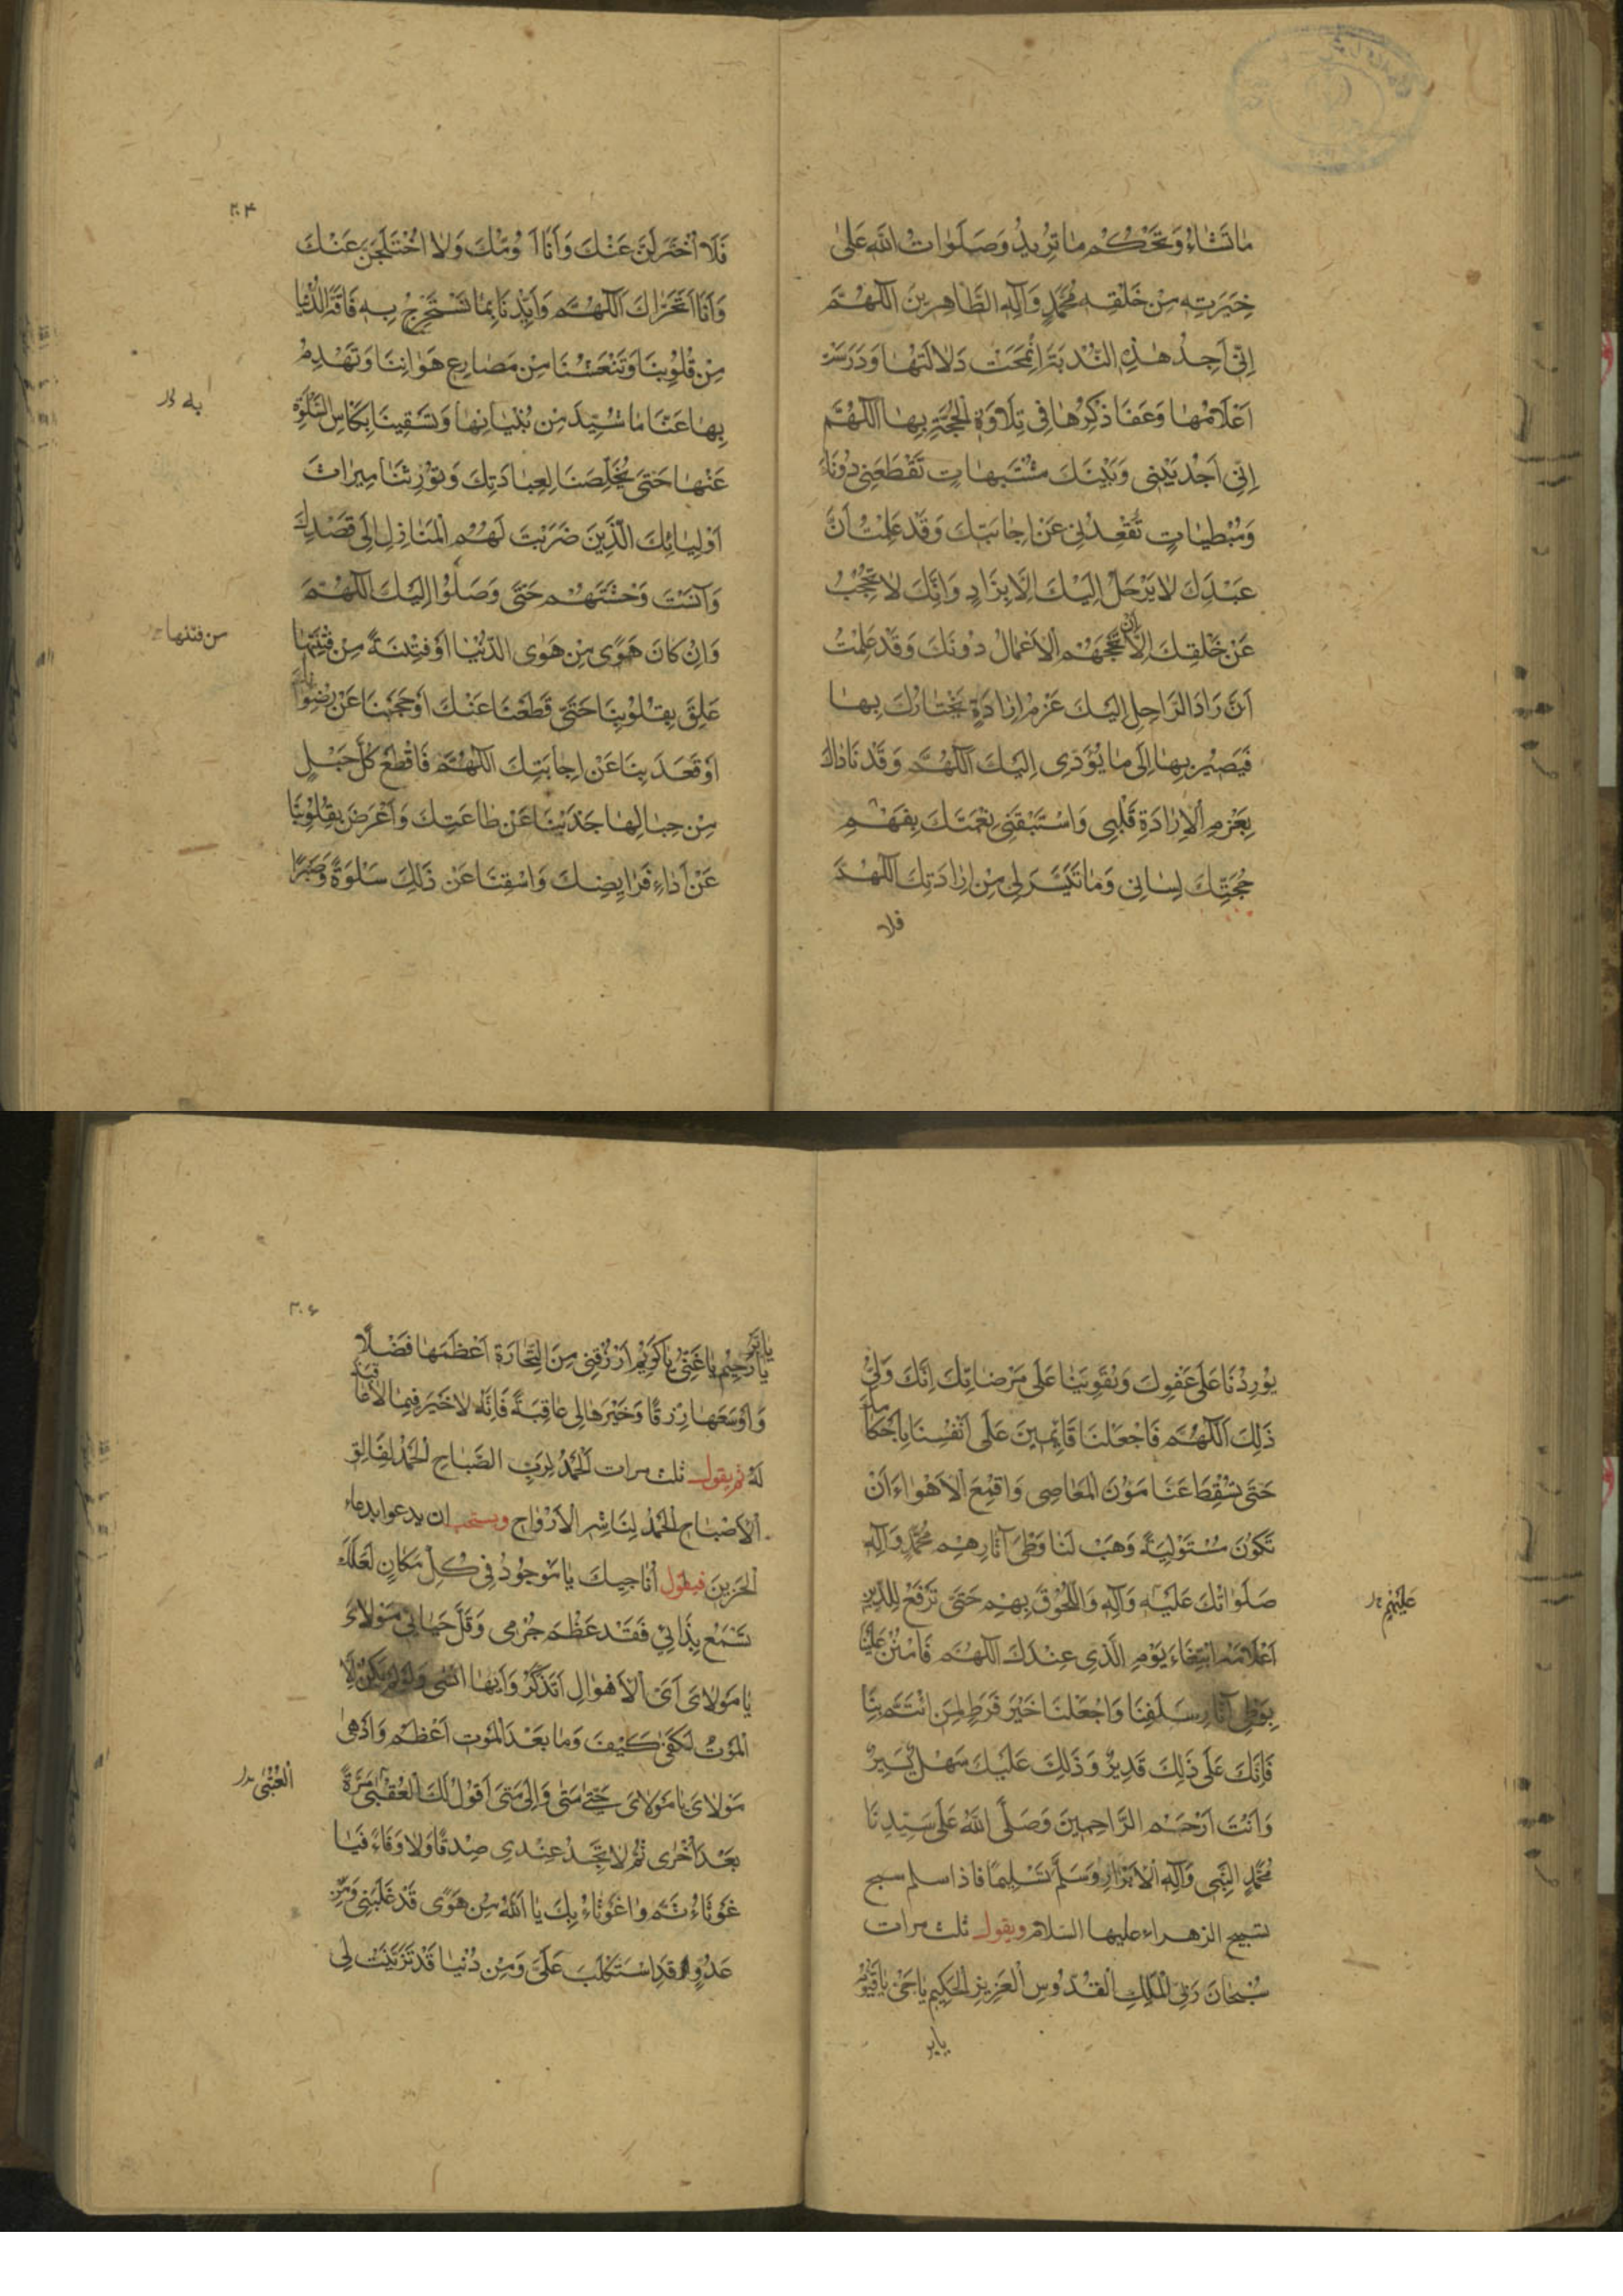 مٰا تَشٰاءُ وَتَحْكُمُ مٰا تُرِيدُ وَصَلَوٰاتُ اللّٰهِ عَلىٰ
خِيَرَتِهِ مِنْ خَلْقِهِ مُحَمَّدٍ وَآلِهِ الطّٰاهِرِينَ اَللّٰهُمَّ
اِنّى اَجِدُ هٰذِهِ النُّدْبَةَ امْتَحَتْ دَلالَتُهٰا وَدَرَسَتْ
اَعْلامُهٰا وَعَفَا ذِكْرُهٰا فى تِلاوَةِ الْحُجَّةِ بِهٰا اَللّٰهُمَّ
اِنّى اَجِدُ بَيْنى وَبَيْنَكَ مُشْتَبِهٰاتٍ تَقْطَعُنى دُونَكَ
وَمُبْطِئاتٍ تُقْعِدُنى عَنْ اِجٰابَتِكَ وَقَدْ عَلِمْتُ اَنَّ
عَبْدَكَ لٰا يَرْحَلُ اِلَيْكَ اِلّٰا بِزٰادٍ وَاِنَّكَ لٰا تُحْجَبُ
عَنْ خَلْقِكَ اِلّٰا اَنْ تَحْجُبَهُمُ الْاَعْمٰالُ دُونَكَ وَقَدْ عَلِمْتُ
اَنَّ زٰادَ الرّٰاحِلِ اِلَيْكَ عَزْمُ اِرٰادَةٍ يَخْتٰارُكَ بِهٰا
فَيَصِيرُ بِهٰا اِلىٰ مٰا يُؤَدّى اِلَيْكَ اَللّٰهُمَّ وَقَدْ نٰادٰاكَ
بِعَزْمِ الْاِرٰادَةِ قَلْبى وَاسْتَبْقَنى نِعْمَتَكَ بِفَهْمِ
حُجَّتِكَ لِسٰانى وَمٰا تَيَسَّرَ لى مِنْ اِرٰادَتِكَ اَللّٰهُمَّ
فلا
٣٠۴
فَلٰا اُخْتَزَلَنَّ عَنْكَ وَاَنٰا اَؤُمُّكَ وَلٰا اُخْتَلَجَنَّ عَنْكَ
وَاَنٰا اَتَحَرّٰاكَ اَللّٰهُمَّ وَاَيِّدْنٰا بِمٰا تَسْتَخْرِجُ بِهِ فٰاقَةَ الدُّنْيٰا
مِنْ قُلُوبِنٰا وَتَنْعَشُنٰا مِنْ مَصٰارِعِ هَوٰانِنٰا وَتَهْدِمُ
بِهٰا عَنّٰا مٰا شُيِّدَ مِنْ بُنْيٰانِهٰا وَتَسْقِينٰا بِكَاْسِ السَّلْوَةِ
عَنْهٰا حَتّىٰ تُخَلِّصَنٰا لِعِبٰادَتِكَ وَتُوْرِثَنٰا مِيرٰاثَ
اَوْلِيٰائِكَ الَّذِينَ ضَرَبْتَ لَهُمُ الْمَنٰازِلَ اِلىٰ قَصْدِكَ
وَآنَسْتَ وَحْشَتَهُمْ حَتّىٰ وَصَلُوْا اِلَيْكَ اَللّٰهُمَّ
وَاِنْ كٰانَ هَوًى مِنْ هَوَى الدُّنْيٰا اَوْ فِتْنَةً مِنْ فِتَنِهٰا
من فتنها
عَلِقَ بِقُلُوْبِنٰا حَتّىٰ قَطَعَنٰا عَنْكَ اَوْ حَجَبَنٰا عَنْ رِضْوٰانِكَ
اَوْ قَعَدَ بِنٰا عَنْ اِجٰابَتِكَ اَللّٰهُمَّ فَاقْطَعْ كُلَّ حَبْلٍ
مِنْ حِبٰالِهٰا جَذَبَنٰا عَنْ طٰاعَتِكَ وَاَعْرَضَ بِقُلُوْبِنٰا
عَنْ اَدٰاءِ فَرٰايِضِكَ وَاسْقِنٰا عَنْ ذٰلِكَ سَلْوَةً وَصَبْرًا
يُوْرِدُنٰا عَلىٰ عَفْوِكَ وَيُقَوِّينٰا عَلىٰ مَرْضٰاتِكَ اِنَّكَ وَلِىُّ
ذٰلِكَ اَللّٰهُمَّ فَاجْعَلْنٰا قٰائِمِينَ عَلىٰ اَنْفُسِنٰا بِاَحْكٰامِكَ
حَتّىٰ تُسْقِطَ عَنّٰا مَؤُنَ الْمَعٰاصِى وَاقْمَعِ الْاَهْوٰاءَ اَنْ
تَكُوْنَ مُسْتَوْلِيَةً وَهَبْ لَنٰا وَطْىَ آثٰارِهِمْ مُحَمَّدٍ وَآلِهِ
صَلَوٰاتُكَ عَلَيْهِ وَآلِهِ وَاللُّحُوْقَ بِهِمْ حَتّىٰ تَرْفَعَ لِلدِّينِ
عَلَيْهِم
اَعْلامَهُ ابْتِغٰاءَ يَوْمِ الَّذِى عِنْدَكَ اَللّٰهُمَّ فَامْنُنْ عَلَيْنٰا
بِوَطْىِ آثٰارِ سَلَفِنٰا وَاجْعَلْنٰا خَيْرَ فَرَطٍ لِمَنِ ائْتَمَّ بِنٰا
فَاِنَّكَ عَلىٰ ذٰلِكَ قَدِيرٌ وَذٰلِكَ عَلَيْكَ سَهْلٌ يَسِيرٌ
وَاَنْتَ اَرْحَمُ الرّٰاحِمِينَ وَصَلَّى اللّٰهُ عَلىٰ سَيِّدِنٰا
مُحَمَّدٍ النَّبِىِّ وَآلِهِ الْاَبْرٰارِ وَسَلَّمَ تَسْلِيمًا فاذا سلم سبح
تسبيح الزهراء عليها السلام ويقول ثلث مرات
سُبْحٰانَ رَبِّىَ الْمَلِكِ الْقُدُّوسِ الْعَزِيزِ الْحَكِيمِ يٰا حَىُّ يٰا قَيُّوْمُ
يا بر
٣٠۶
يٰا بَرُّ يٰا رَحِيمُ يٰا غَنِىُّ يٰا كَرِيمُ اُرْزُقْنِى مِنَ التِّجٰارَةِ اَعْظَمَهٰا فَضْلًا
وَاَوْسَعَهٰا رِزْقًا وَخَيْرَهٰا لِى عٰاقِبَةً فَاِنَّهُ لٰا خَيْرَ فِيمٰا لٰا عٰاقِبَةَ
لَهُ ثم يقول ثلث مرات اَلْحَمْدُ لِرَبِّ الصَّبٰاحِ الْحَمْدُ لِفٰالِقِ
الْاَصْبٰاحِ الْحَمْدُ لِنٰاشِرِ الْاَرْوٰاحِ ويستحب ان يدعو بدعاء
الْحَزِينِ فيقول اُنٰاجِيكَ يٰا مَوْجُوْدُ فِى كُلِّ مَكٰانٍ لَعَلَّكَ
تَسْمَعُ نِدٰائِى فَقَدْ عَظُمَ جُرْمِى وَقَلَّ حَيٰائِى مَوْلٰاىَ
يٰا مَوْلٰاىَ اَىَّ الْاَهْوٰالِ اَتَذَكَّرُ وَاَيَّهٰا اَنْسىٰ وَلَوْ لَمْ يَكُنْ اِلَّا
الْمَوْتُ لَكَفىٰ كَيْفَ وَمٰا بَعْدَ الْمَوْتِ اَعْظَمُ وَاَدْهىٰ
مَوْلٰاىَ يٰا مَوْلٰاىَ حَتّىٰ مَتىٰ وَاِلىٰ مَتىٰ اَقُوْلُ لَكَ الْعُقْبىٰ مَرَّةً
العُتْبٰى
بَعْدَ اُخْرىٰ ثُمَّ لٰا تَجِدُ عِنْدِى صِدْقًا وَلٰا وَفٰاءً فَيٰا
غَوْثٰاهُ ثُمَّ وٰا غَوْثٰاهُ بِكَ يٰا اَللّٰهُ مِنْ هَوًى قَدْ غَلَبَنِى وَمِنْ
عَدُوٍّ قَدِ اسْتَكْلَبَ عَلَىَّ وَمِنْ دُنْيٰا قَدْ تَزَيَّنَتْ لِى